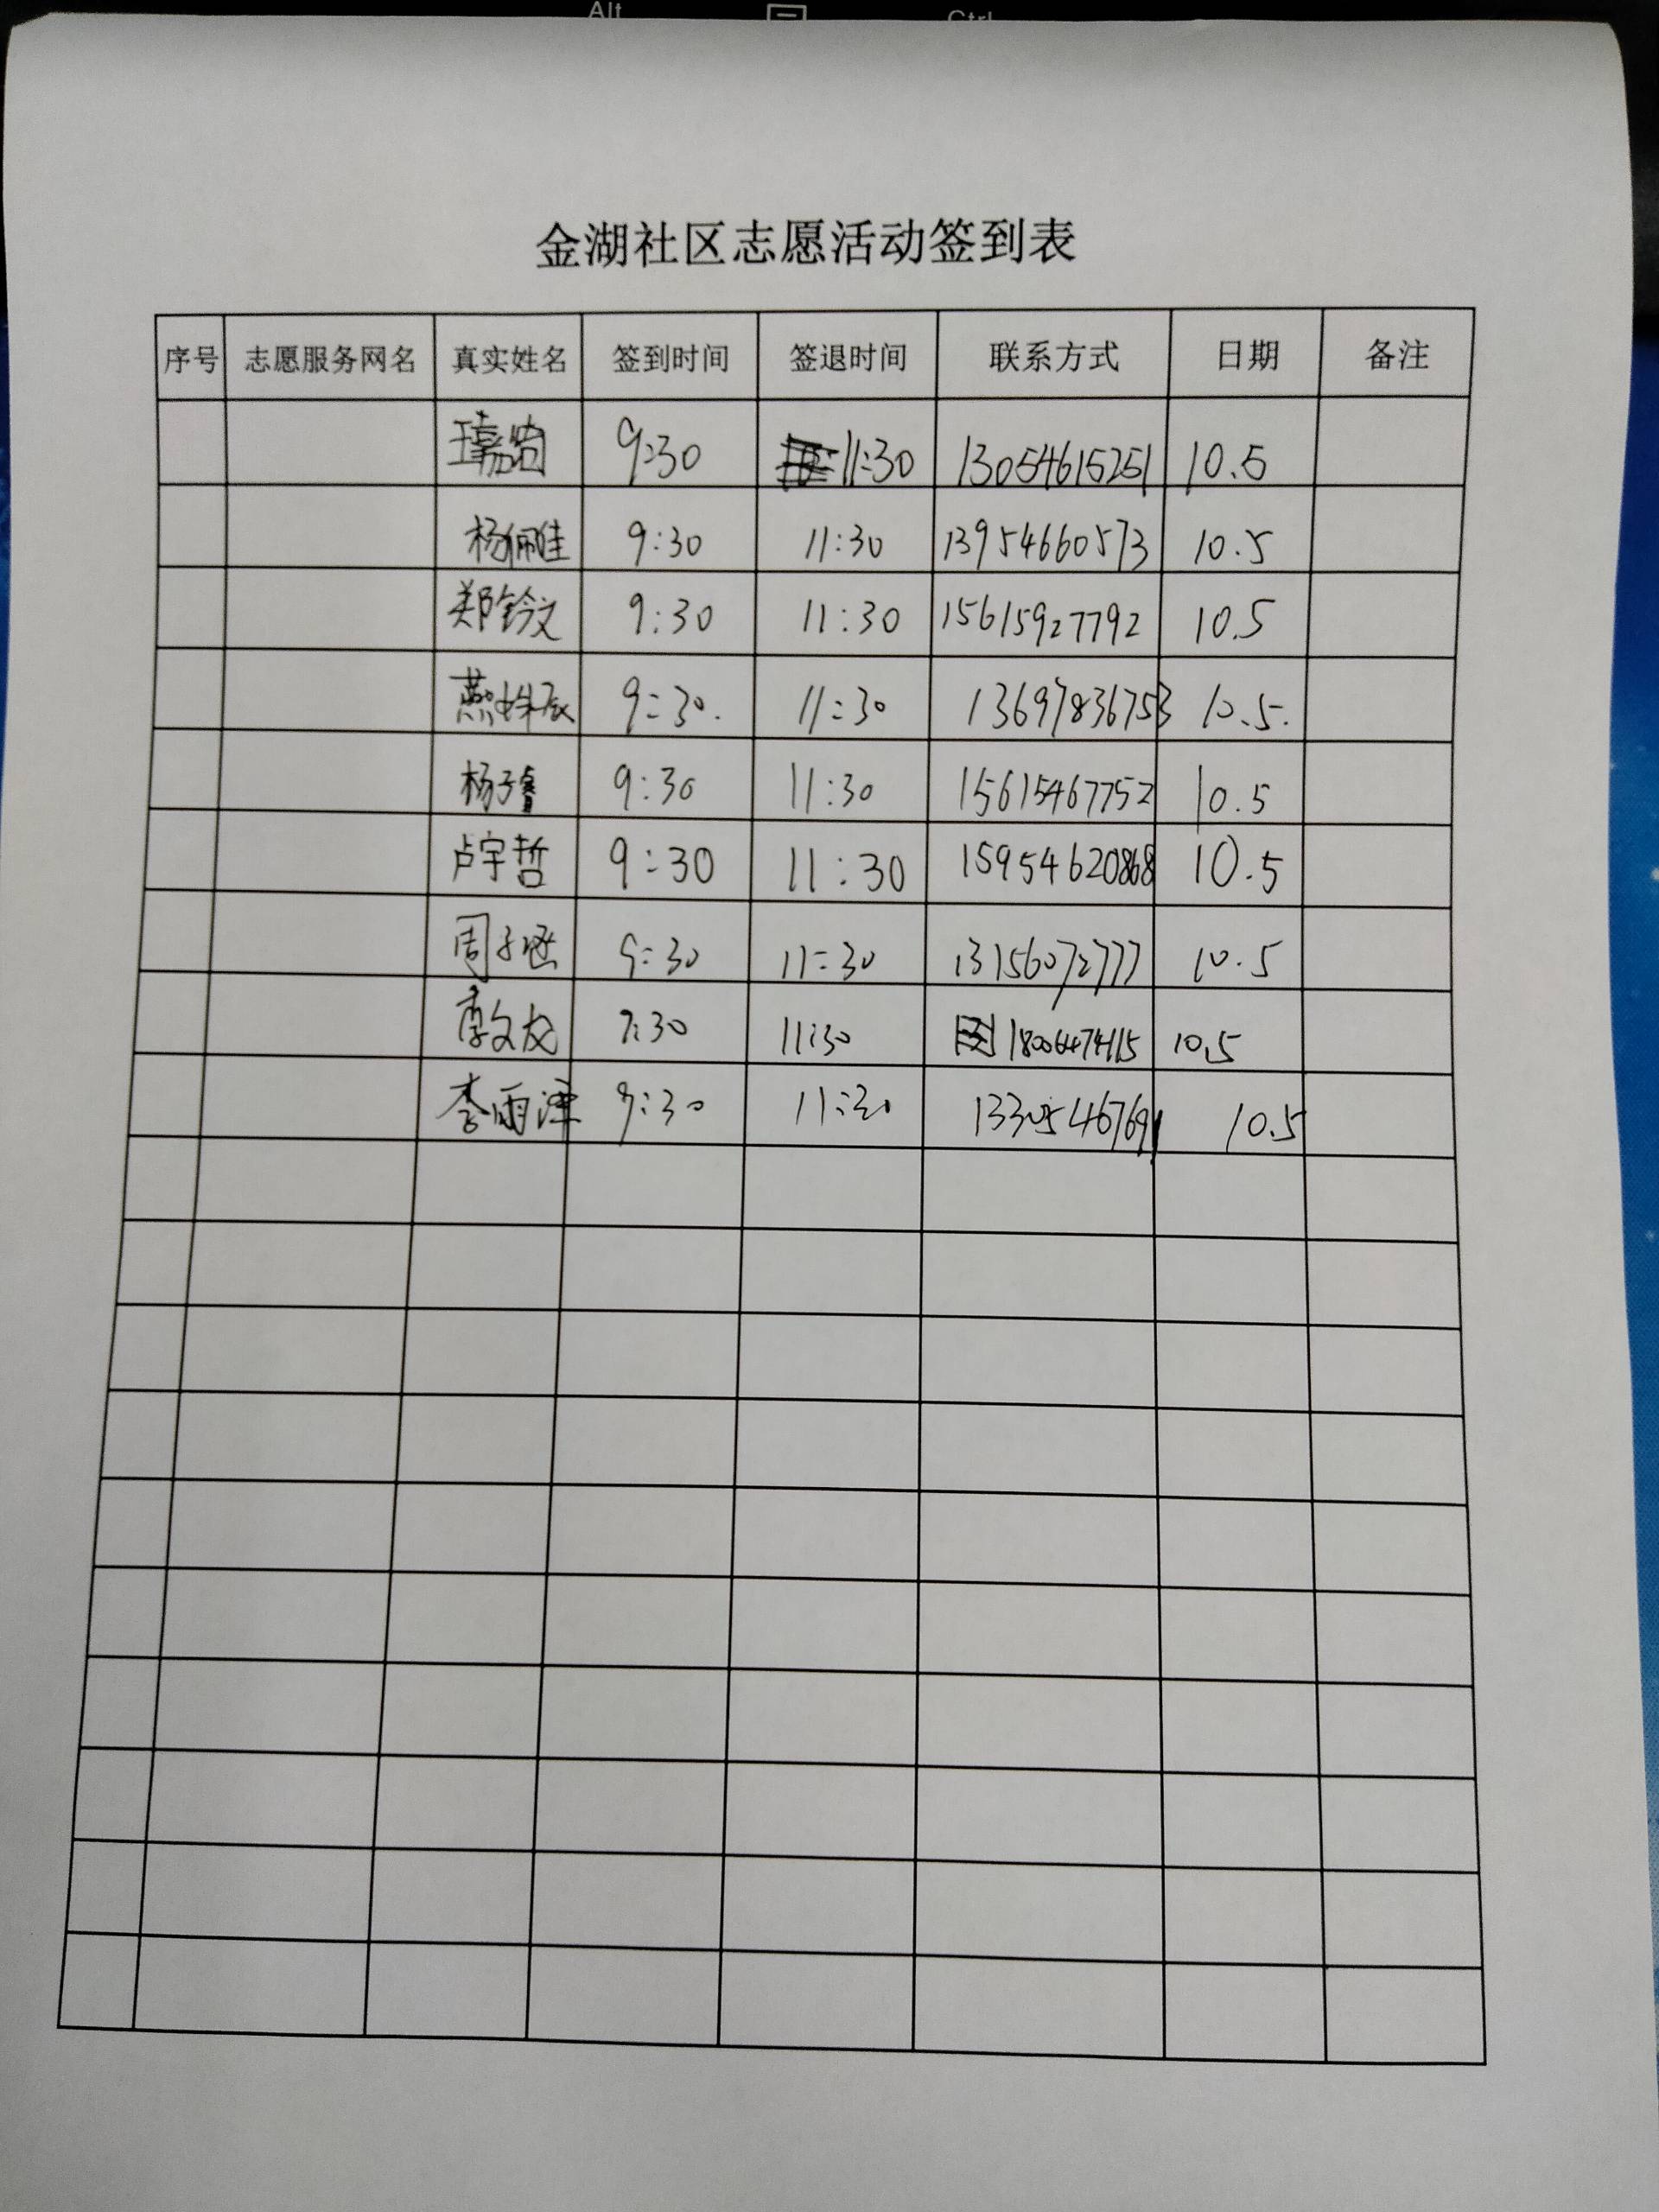 Alt Ctrl
金湖社区志愿活动签到表
序号 志愿服务网名 真实姓名 签到时间 签退时间 联系方式 日期 备注
9:30 11:30 13054615251 10.5
杨佩佳 9:30 11:30 13954660573 10.5
郑铃文 9:30 11:30 15615927792 10.5
燕姝辰 9:30. 11:30 13697836753 10.5.
杨子睿 9:30 11:30 15615467752 10.5
卢宇哲 9:30 11:30 15954620868 10.5
周子涵 9:30 11:30 13156072777 10.5
李文龙 9:30 11:30 18006474115 10.5
李雨泽 9:30 11:30 13305467691 10.5